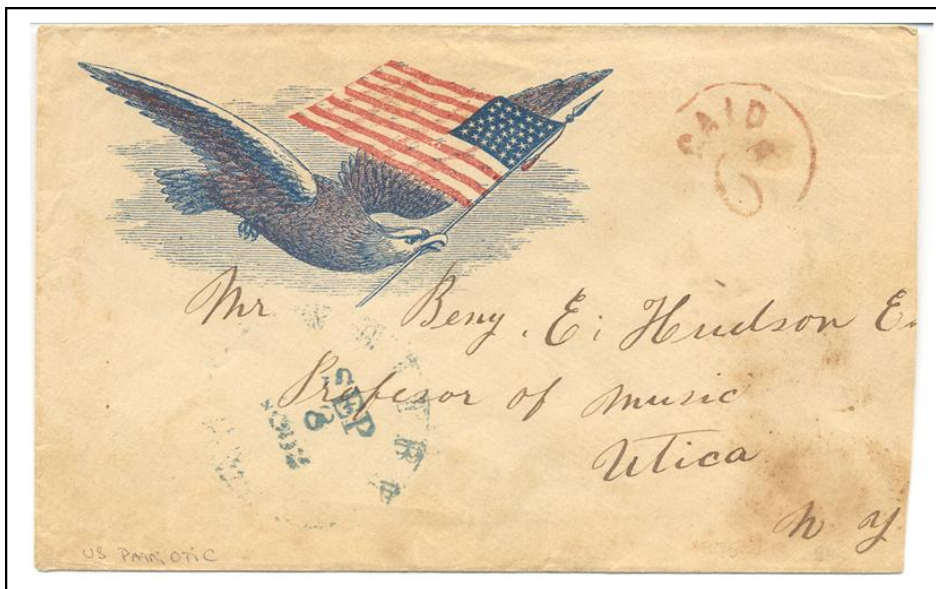 PAID
6
Mr Benj. E. Hudson E
SEP
3
Profesor of music
Utica
N Y
US PATRIOTIC